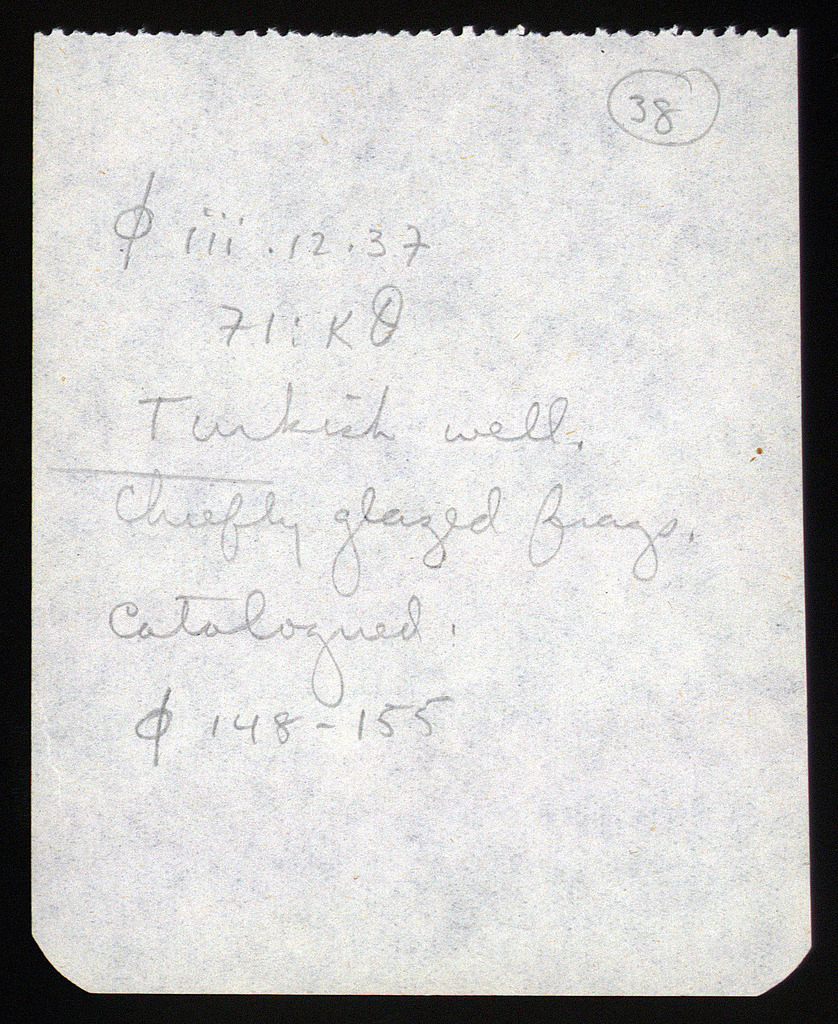 38
ϕ iii.12.37
71:KΘ
Turkish well.
Chiefly glazed frags.
Catalogued.
ϕ 148-155